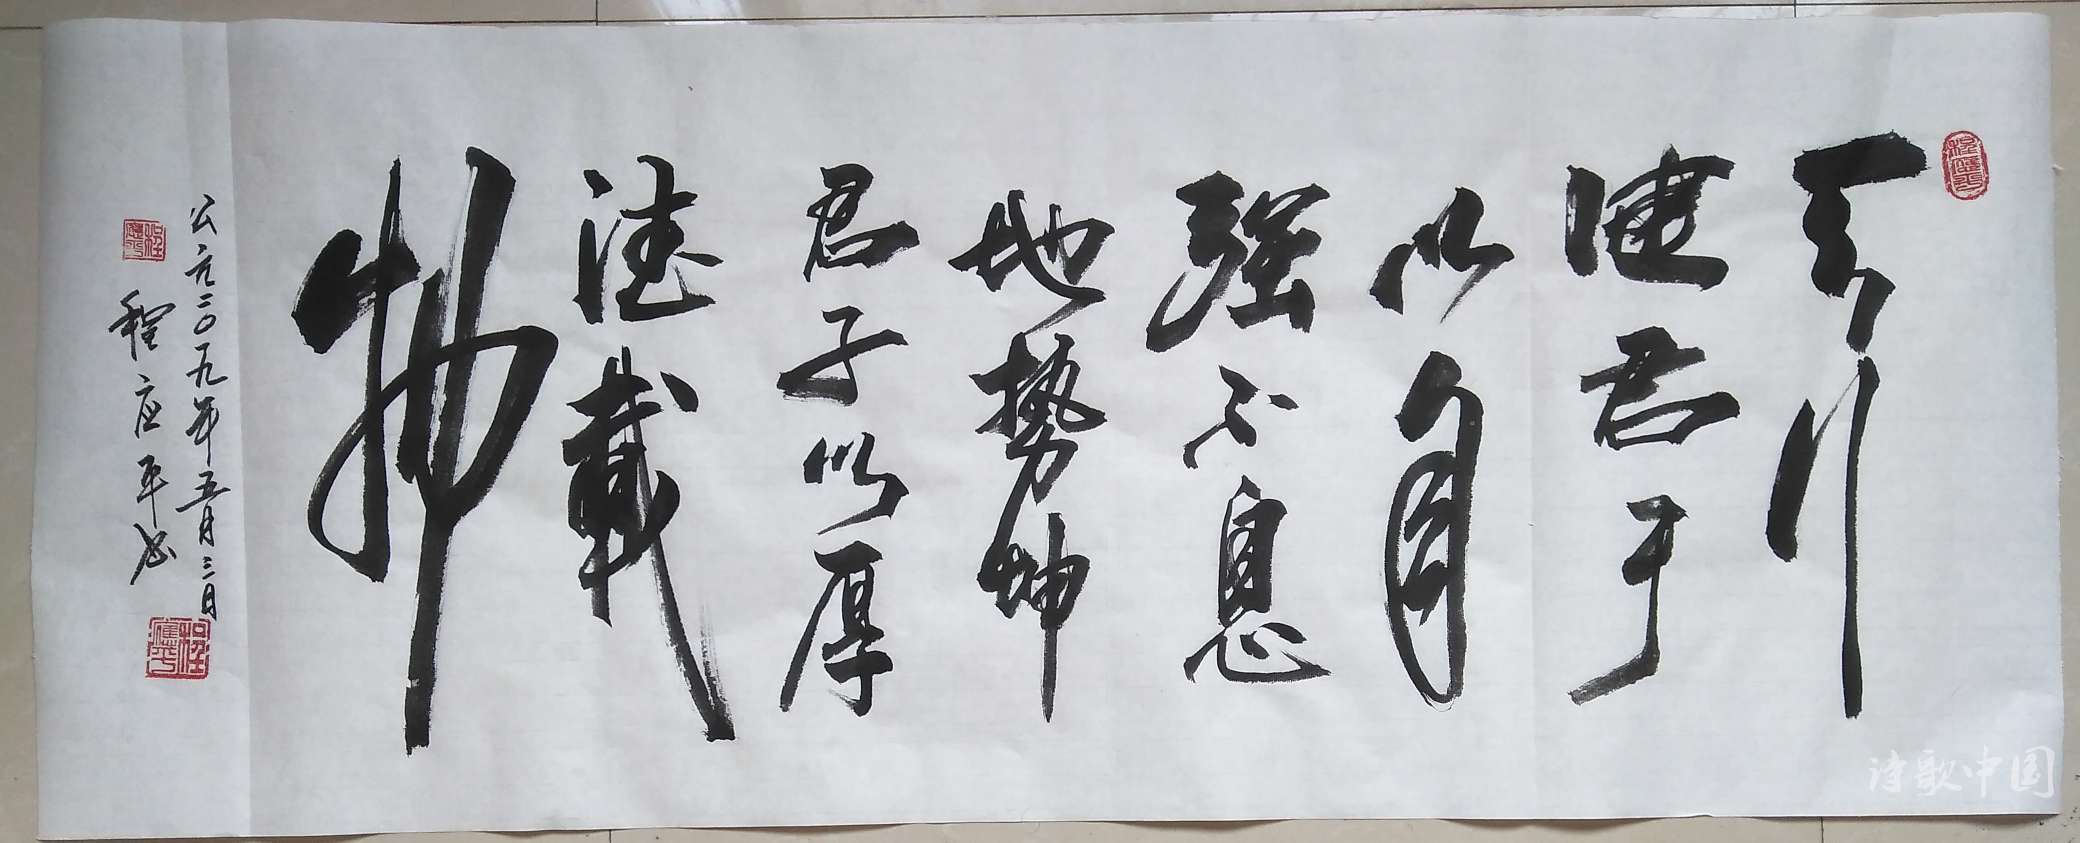 天行
健君子
以自
强不息
地势坤
君子以厚
德载
物
公元二〇一九年五月三日
程应平书
程應平
诗歌中国